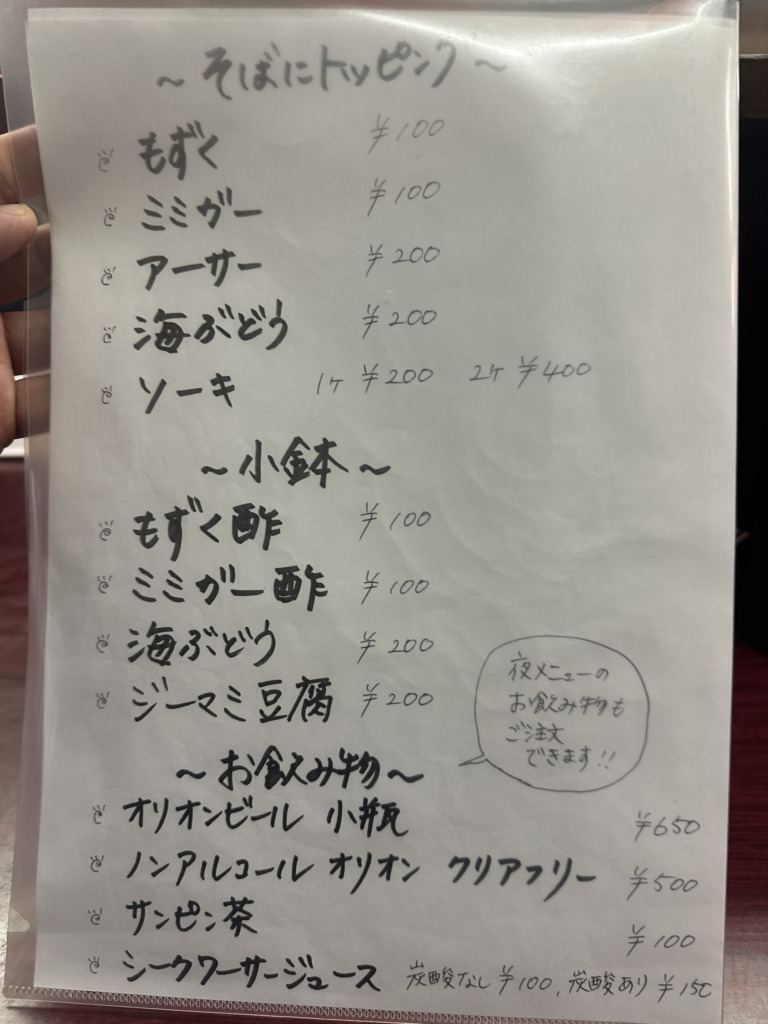 ～そばにトッピング～
もずく ¥100
ミミガー ¥100
アーサー ¥200
海ぶどう ¥200
ソーキ 1ヶ ¥200 2ヶ ¥400
～小鉢～
もずく酢 ¥100
ミミガー酢 ¥100
海ぶどう ¥200
ジーマミ豆腐 ¥200
夜メニューの
お飲み物も
ご注文
できます!!
～お飲み物～
オリオンビール 小瓶 ¥650
ノンアルコール オリオン クリアフリー ¥500
サンピン茶 ¥100
シークワーサージュース 炭酸なし ¥100, 炭酸あり ¥150